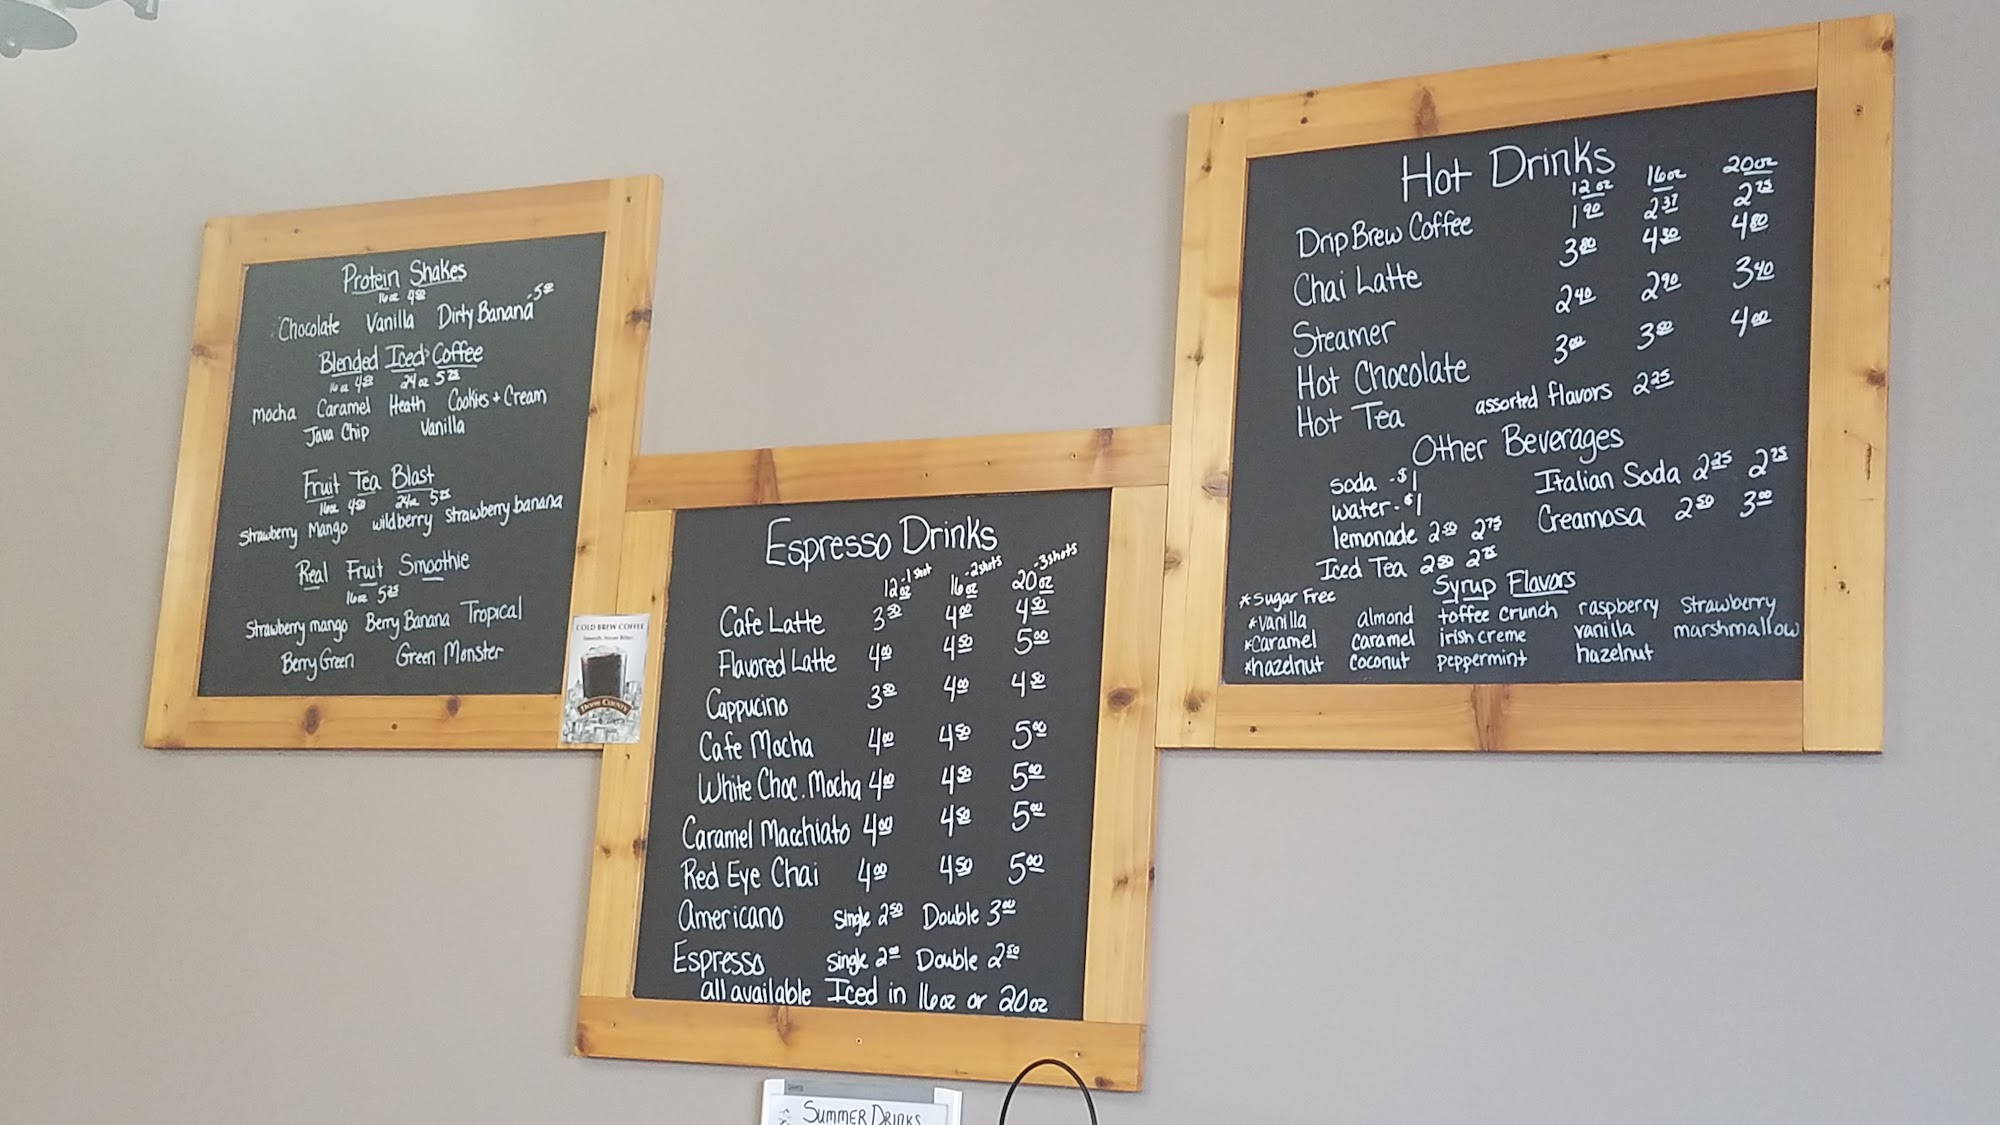 Protein Shakes
16oz 4.50
Chocolate Vanilla Dirty Banana 5.50
Blended Iced Coffee
16oz 4.50 24oz 5.75
Mocha Caramel Heath Cookies + Cream
Java Chip Vanilla
Fruit Tea Blast
16oz 4.50 24oz 5.75
Strawberry Mango wildberry strawberry banana
Real Fruit Smoothie
16oz 5.25
Strawberry mango Berry Banana Tropical
Berry Green Green Monster
COLD BREW COFFEE
Smooth. Never Bitter.
DOOR COUNTY
Espresso Drinks
12oz -1 shot 16oz -2 shots 20oz -3 shots
Cafe Latte 3.50 4.00 4.50
Flavored Latte 4.00 4.50 5.00
Cappucino 3.50 4.00 4.50
Cafe Mocha 4.00 4.50 5.00
White Choc. Mocha 4.00 4.50 5.00
Caramel Macchiato 4.00 4.50 5.00
Red Eye Chai 4.00 4.50 5.00
Americano Single 2.50 Double 3.00
Espresso single 2.00 Double 2.50
all available Iced in 16oz or 20oz
SUMMER DRINKS
Hot Drinks
12oz 16oz 20oz
Drip Brew Coffee 1.90 2.37 2.75
Chai Latte 3.80 4.30 4.80
Steamer 2.40 2.90 3.40
Hot Chocolate 3.00 3.50 4.00
Hot Tea assorted flavors 2.25
Other Beverages
soda - $1 Italian Soda 2.25 2.75
water - $1 Creamosa 2.50 3.00
lemonade 2.50 2.75
Iced Tea 2.50 2.75
Syrup Flavors
*Sugar Free
*vanilla almond toffee crunch raspberry strawberry
*caramel caramel irish creme vanilla marshmallow
*hazelnut coconut peppermint hazelnut